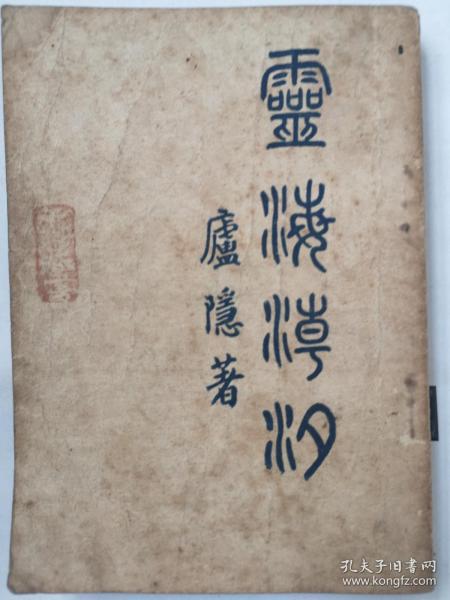 靈海潮汐
廬隱著
孔夫子旧书网
www.kongfz.com